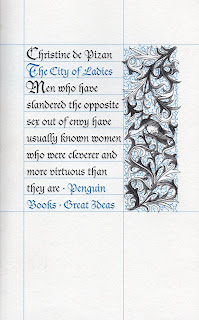 Christine de Pizan
The City of Ladies
Men who have
slandered the opposite
sex out of envy have
usually known women
who were cleverer and
more virtuous than
they are · Penguin
Books · Great Ideas